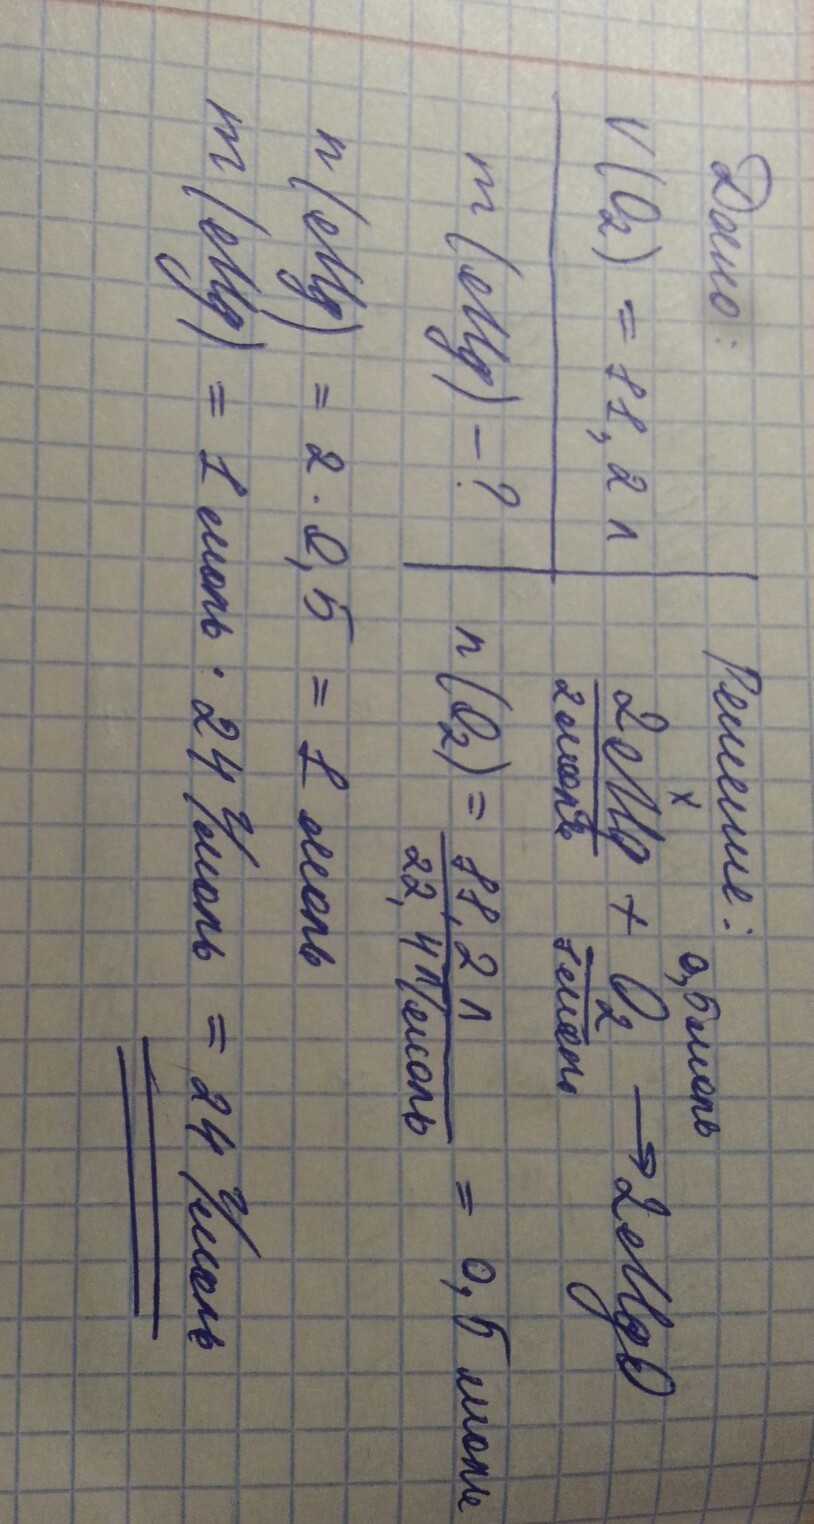 Дано:
V(O₂) = 11,2 л
m(Mg) – ?
Решение:
x 0,5 моль
2Mg + O₂ → 2MgO
2 моль 1 моль
n(O₂) = 11,2 л / 22,4 л/моль = 0,5 моль
n(Mg) = 2 · 0,5 = 1 моль
m(Mg) = 1 моль · 24 г/моль = 24 г/моль